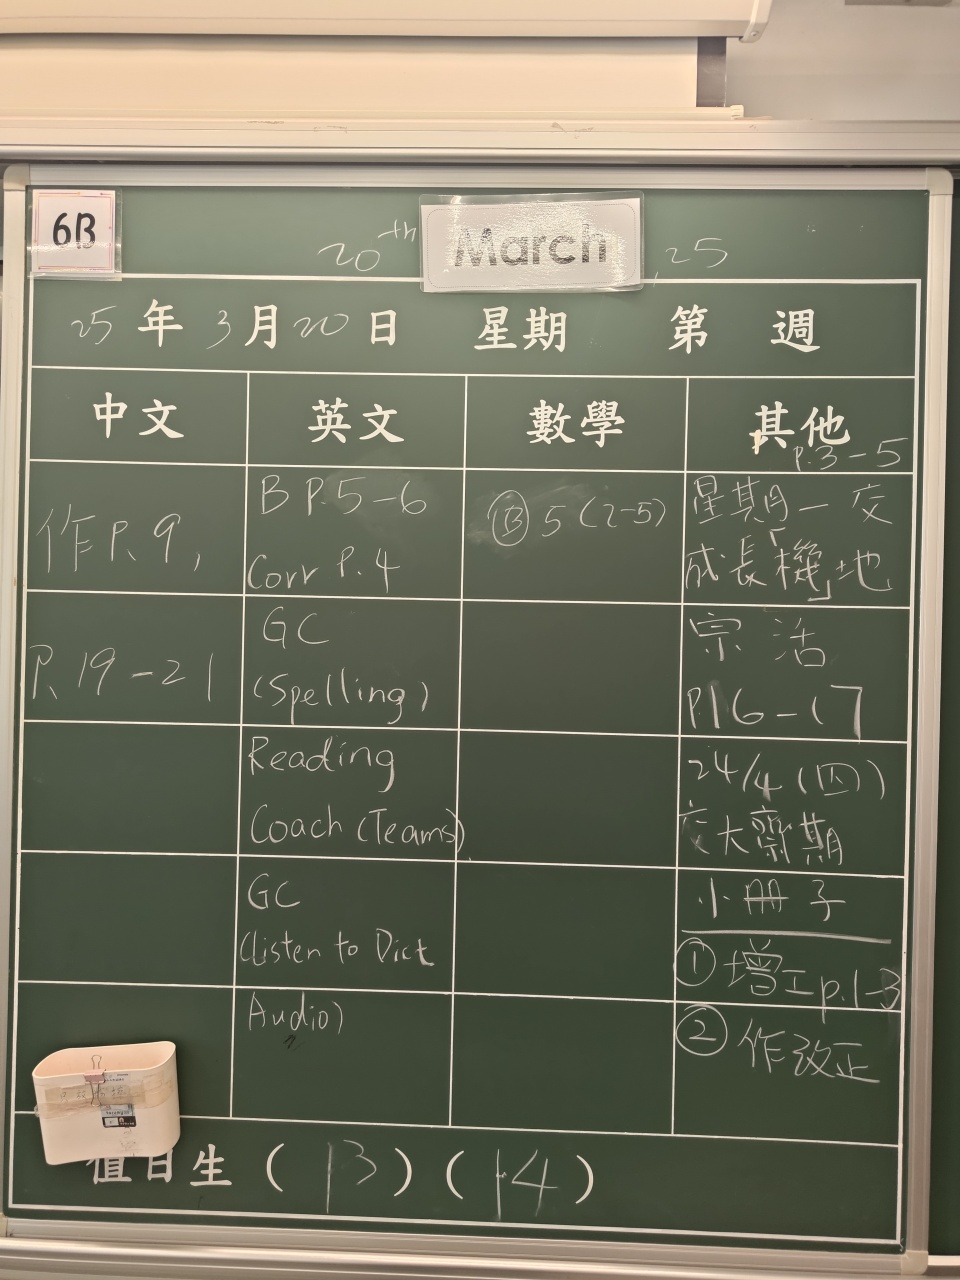 6B
20th March ,25
25年3月20日 星期 第 週
中文 英文 數學 其他
作P.9,
P.19-21
B P.5-6
Corr P.4
GC
(Spelling)
Reading
Coach (Teams)
GC
(Listen to Dict
Audio)
Ⓑ 5 (2-5)
P.3-5
星期一交
成長「機」地
宗活
P.16-17
24/4 (四)
交大齋期
小冊子
① 增工p.1-3
② 作改正
值日生 ( 13 ) ( 14 )